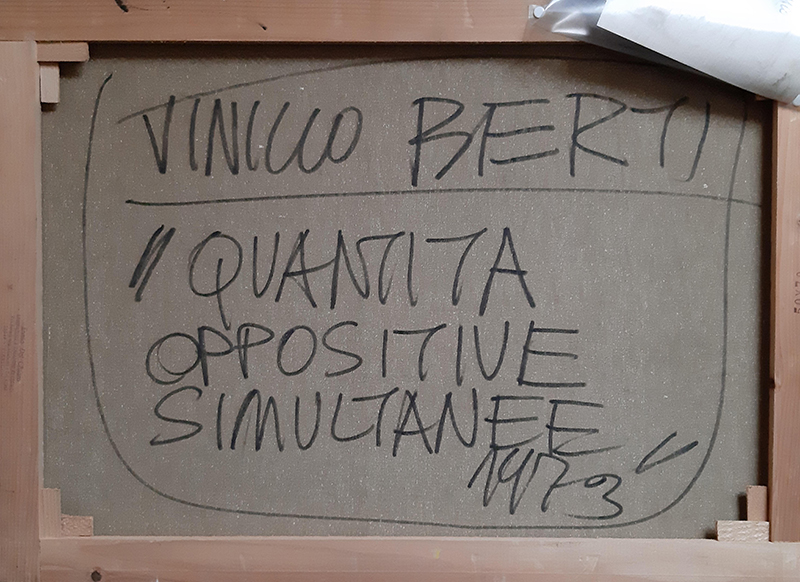 VINICIO BERTI
"QUANTITA
OPPOSITIVE
SIMULTANEE
1973"